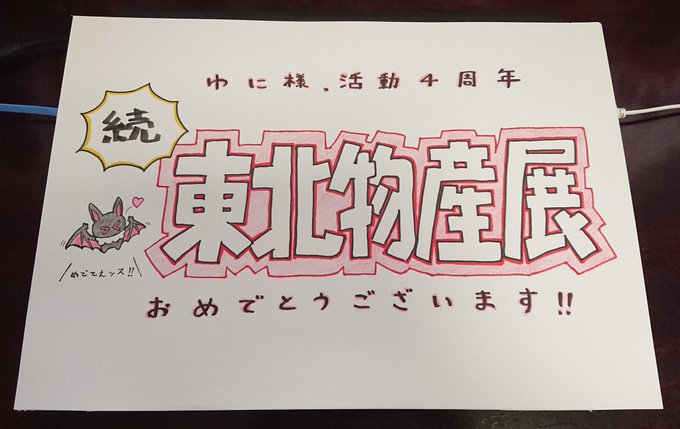 ゆに様、活動4周年
続
東北物産展
めでてえッス!!
おめでとうございます!!